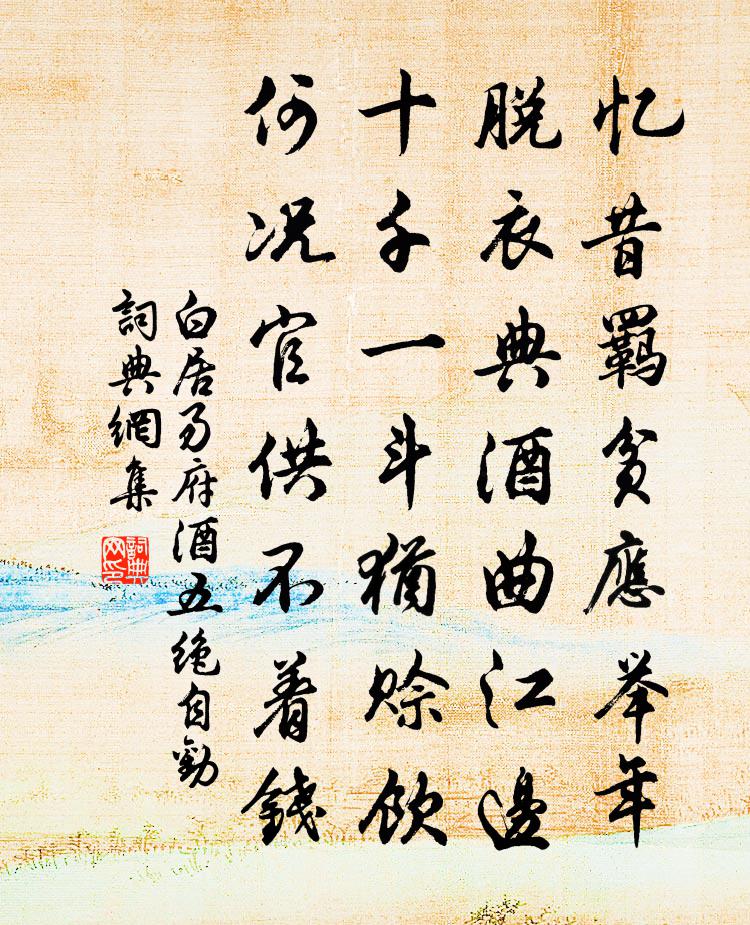 忆昔羇贫應举年
脱衣典酒曲江邊
十千一斗猶赊飲
何况官供不着錢
白居易府酒五绝自勸
詞典網集
詞典网印